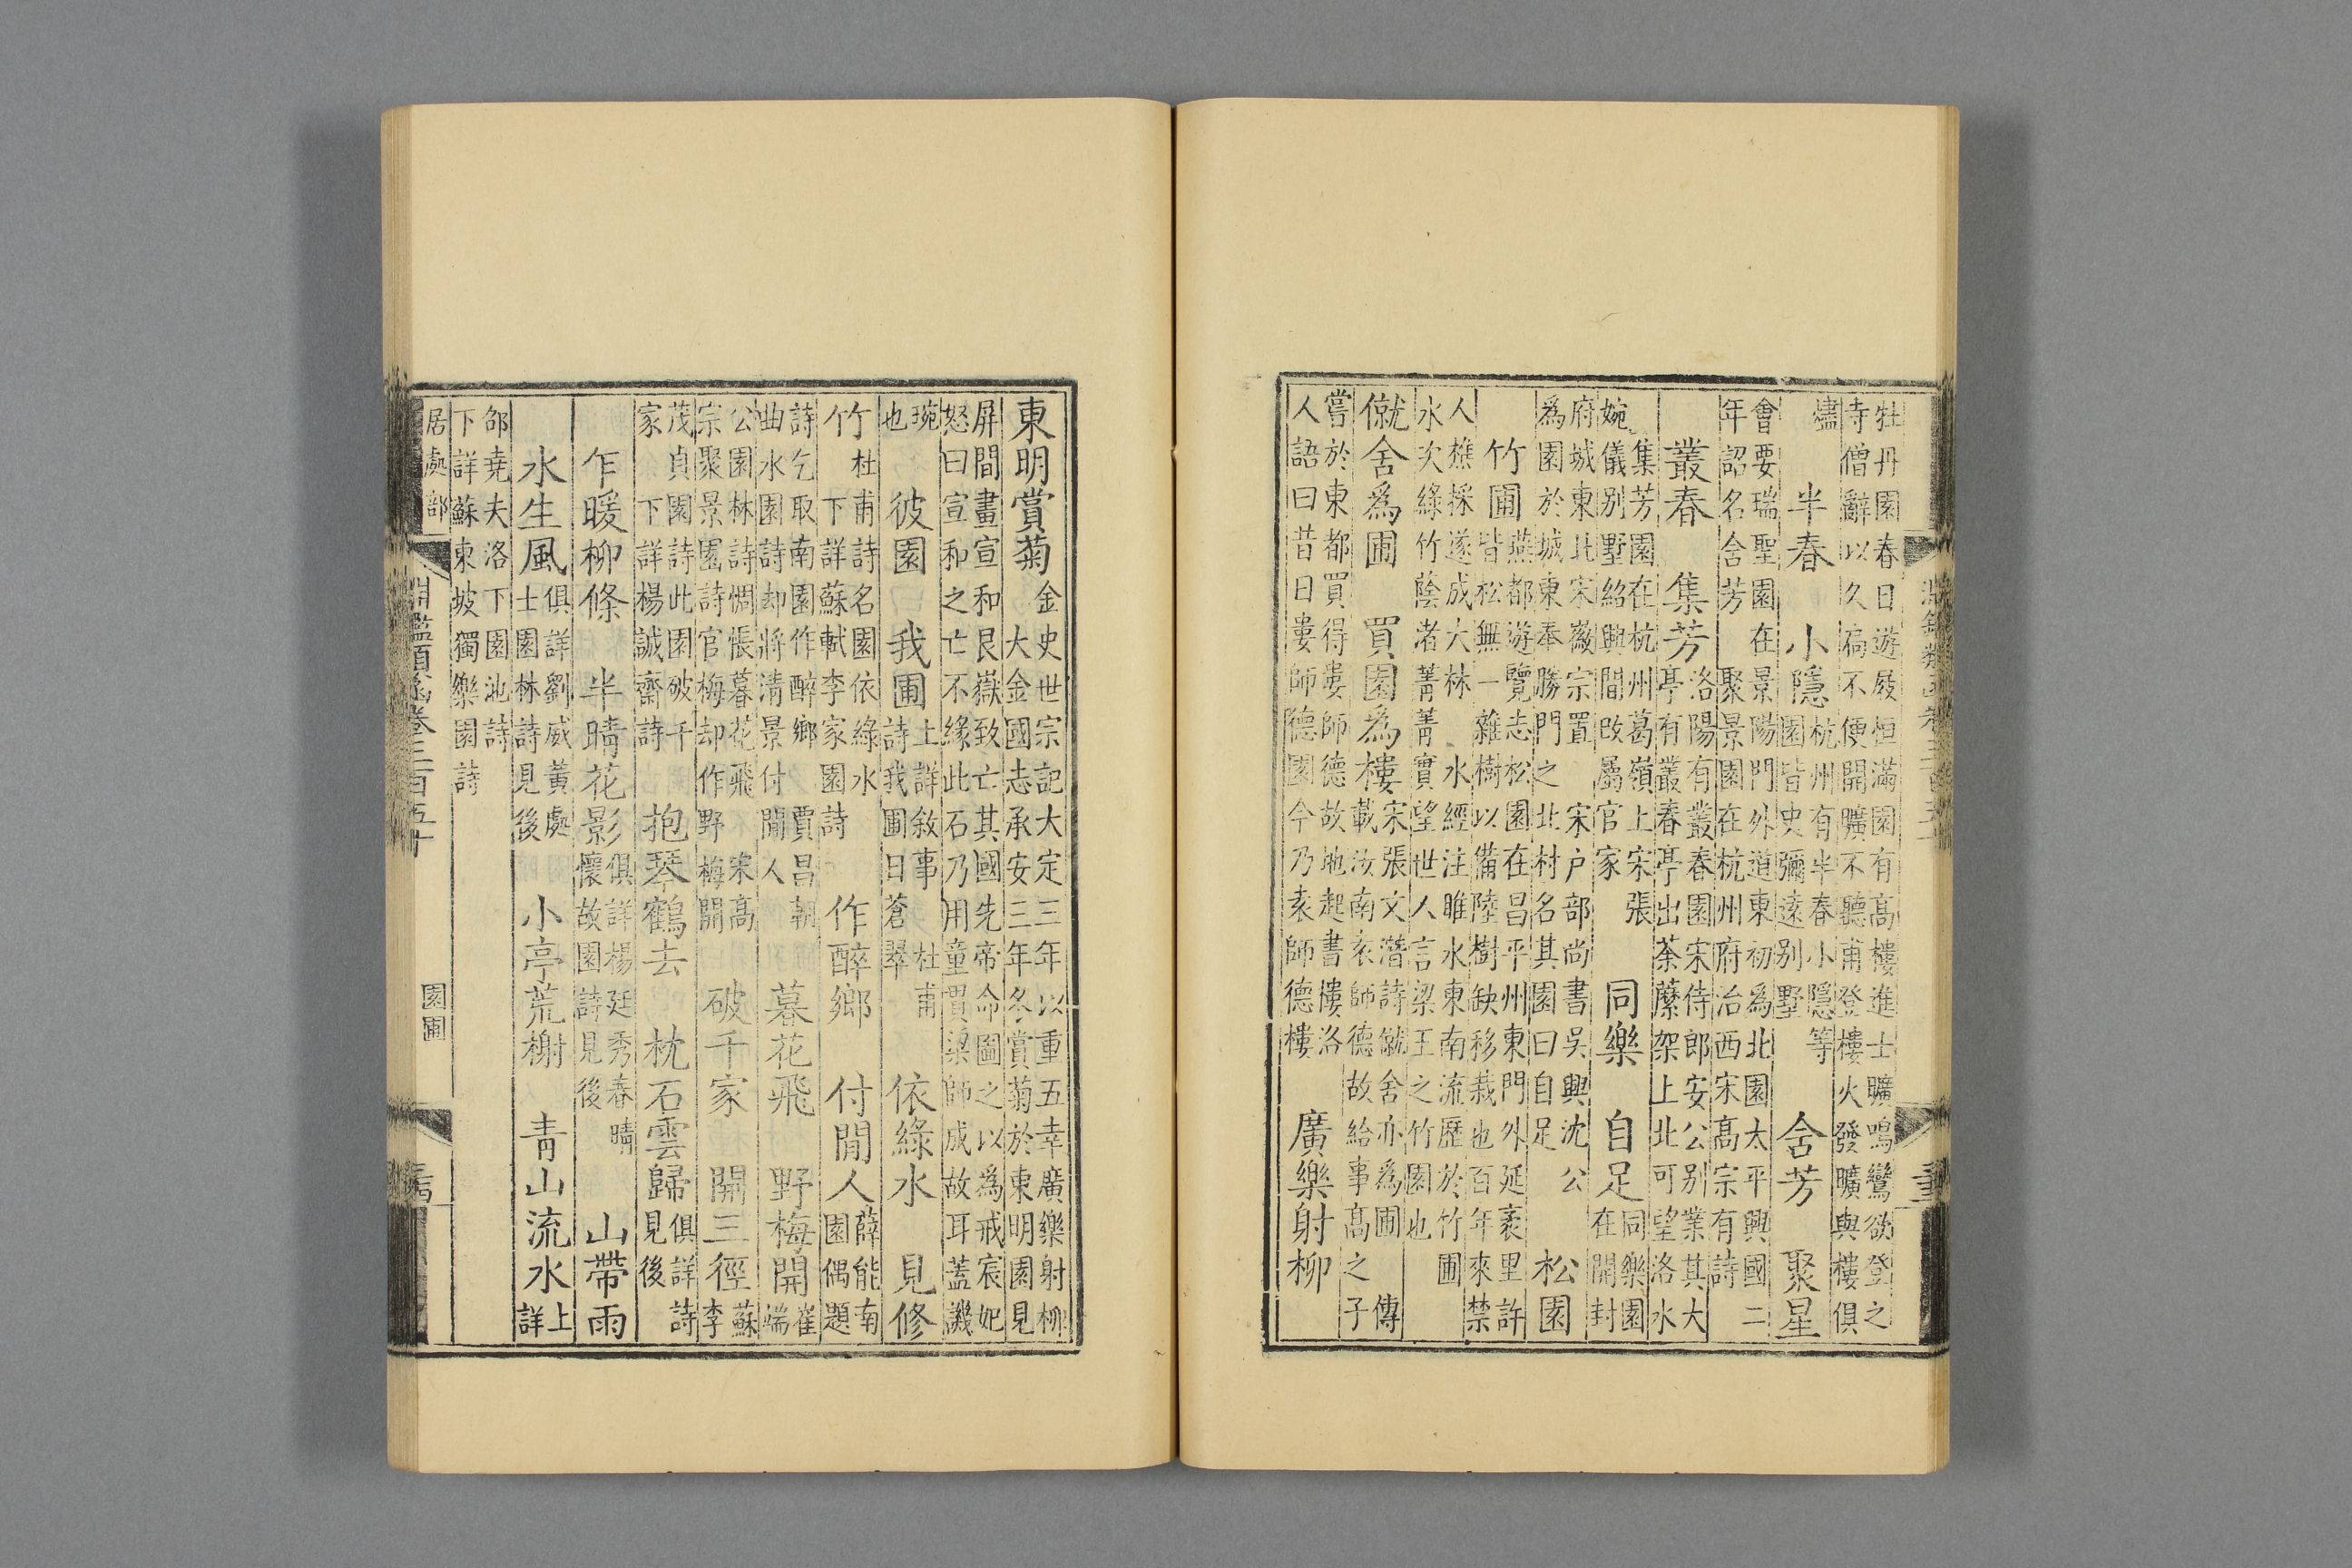 牡丹園春日遊屐恒滿園有高樓進士曠鳴鸞欲登之
寺僧辭以久扃不便開曠不聽甫登樓火發曠與樓俱
燼
半春
小隱
杭州有半春小隱等
園皆史彌遠別墅
含芳
聚星
會要瑞聖園在景陽門外道東初為北園太平興國二
年詔名含芳
聚景園在杭州府治西宋高宗有詩
叢春
集芳
洛陽有叢春園宋侍郎安公別業其大
亭有叢春亭出荼蘼架上北可望洛水
集芳園在杭州葛嶺上宋張
婉儀別墅紹興間改屬官家
同樂
自足
同樂園
在開封
府城東北宋徽宗置
宋戶部尚書吳興沈公
為園於城東奉勝門之北村名其園曰自足
松園
竹圃
燕都遊覽志松園在昌平州東門外延袤里許
皆松無一雜樹以備陸樹缺移栽也百年來禁
人樵採遂成大林
水經注睢水東南流歷於竹圃
水次綠竹蔭渚菁菁實望世人言梁王之竹園也
僦舍為圃
買園為樓
宋張文潛詩僦舍亦為圃
傳
載汝南袁師德故給事高之子
嘗於東都買得婁師德故地起書樓洛
人語曰昔日婁師德園今乃袁師德樓
廣樂射柳
東明賞菊
金史世宗記大定三年以重五幸廣樂射柳
大金國志承安三年冬賞菊於東明園見
屏間畫宣和艮嶽致亡其國先帝命圖之以為戒宸妃
怒曰宣和之亡不緣此石乃用童貫梁師成故耳蓋譏
琬
也
彼園
我圃
上詳敘事
杜甫
詩我圃日蒼翠
依綠水
見修
竹
杜甫詩名園依綠水
下詳蘇軾李家園詩
作醉鄉
付閒人
薛能南
園偶題
詩乞取南園作醉鄉
賈昌朝
曲水園詩却將清景付閒人
暮花飛
野梅開
崔
端
公園林詩惆悵暮花飛
宋高
宗聚景園詩官梅却作野梅開
破千家
開三徑
蘇
李
茂貞園詩此園破千
家
下詳楊誠齋詩
抱琴鶴去
枕石雲歸
俱詳詩
見後
乍暖柳條
半晴花影
俱詳楊廷秀春晴
懷故園詩見後
山帶雨
水生風
俱詳劉威黃處
士園林詩見後
小亭荒榭
青山流水
上
詳
邵堯夫洛下園池詩
下詳蘇東坡獨樂園詩
居處部
淵鑑類函卷三百五十
園圃